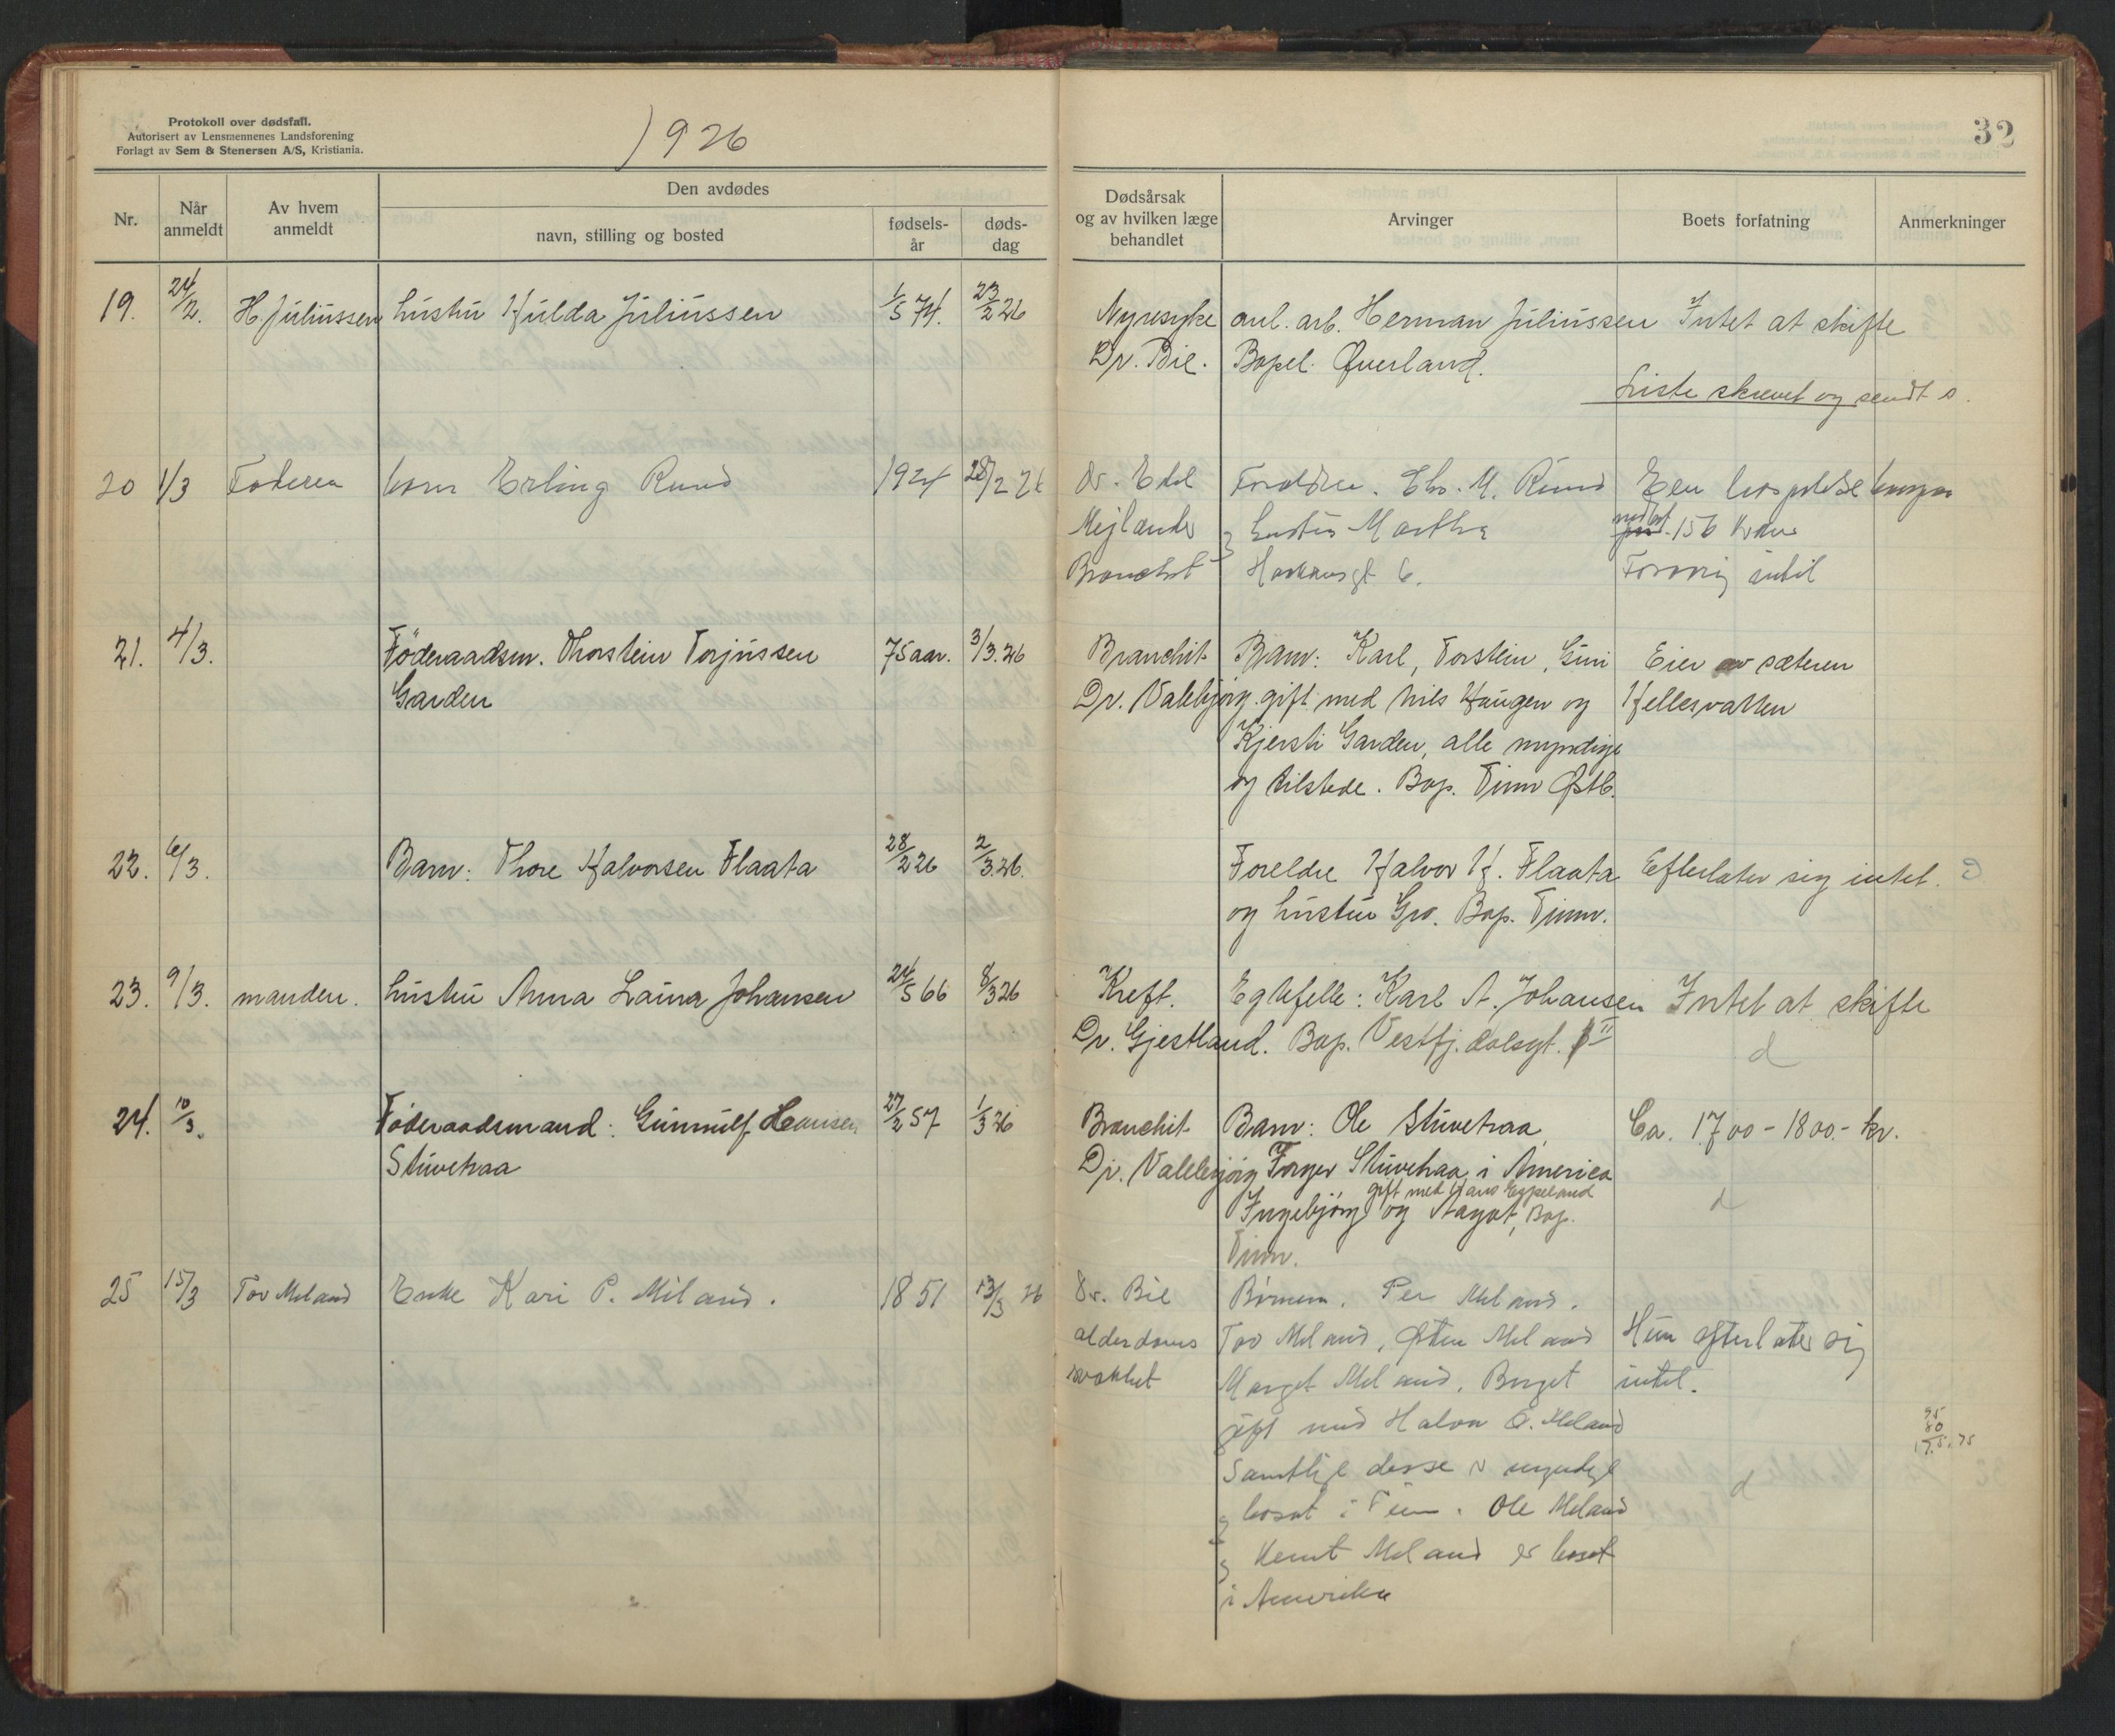 Protokoll over dødsfall.
Autorisert av Lensmennenes Landsforening
Forlagt av Sem & Stenersen A/S, Kristiania.
1926
32
Nr.
Når anmeldt
Av hvem anmeldt
Den avdødes
navn, stilling og bosted
fødsels-år
døds-dag
Dødsårsak og av hvilken læge behandlet
Arvinger
Boets forfatning
Anmerkninger
19. 24/2. H. Juliussen hustru Hulda Juliussen 1/5 74. 23/2 26 Nyresyke anl. arb. Herman Juliussen Intet at skifte
Dr. Bie. Bopel. Øverland.
Liste skrevet og sendt s.
20 1/3 Faderen barn Erling Ruud 1924 28/2 26 Dr. Edel Foreldre. Chr. M. Ruud Een livspolise
Mejlænder og hustru Martha nedbet. 156 Kroner
Bronchit 6. Forøvrig intil
21. 4/3. Föderaadsm. Thorstein Torjussen 75 aar. 3/3.26 Bronchit Barn: Karl, Torstein, Guri Eier av sæteren
Garden Dr. Valebjørg. gift med Nils Haugen og Hellesvatten
Kjersti Garden, alle myndige
og tilstede. Bop. Tinn Østb.
22. 6/3. Barn: Thore Halvorsen Flaata 28/2 26 2/3.26. Foreldre Halvor H. Flaata Efterlater sig intet. D
og hustru Gro. Bop. Tinn.
23. 9/3. manden. hustru Anna Laura Johansen 24/5 66 8/3 26 Kreft. Egtefelle: Karl A. Johansen Intet at skifte
Dr. Gjestland. Bop. Vestfj.dalsgt. II
d
24. 10/3. Föderaadsmand: Gunnulf Hansen 27/2 57 1/3 26 Bronchit Barn: Ole Stuvetraa, Ca. 1700 - 1800.- kr.
Stuvetraa Dr. Valebjørg Torger Stuvetraa i America
gift med Hans
Ingebjørg og Aagot, Bop.
d
Tinn.
25 15/3 Tov Meland Enke Kari P. Miland. 1851 13/3 26 Dr. Bie Børnene. Per Meland.
alderdoms Tov Meland, Østen Meland Hun efterlater sig
svakhet Marget Meland, Birget intet.
gift med Halvor O. Meland
Samtlige disse er myndige
og bosat i Tinn. Ole Meland
d
og Knut Meland er bosat
i Amerika
95
80
17.5.75